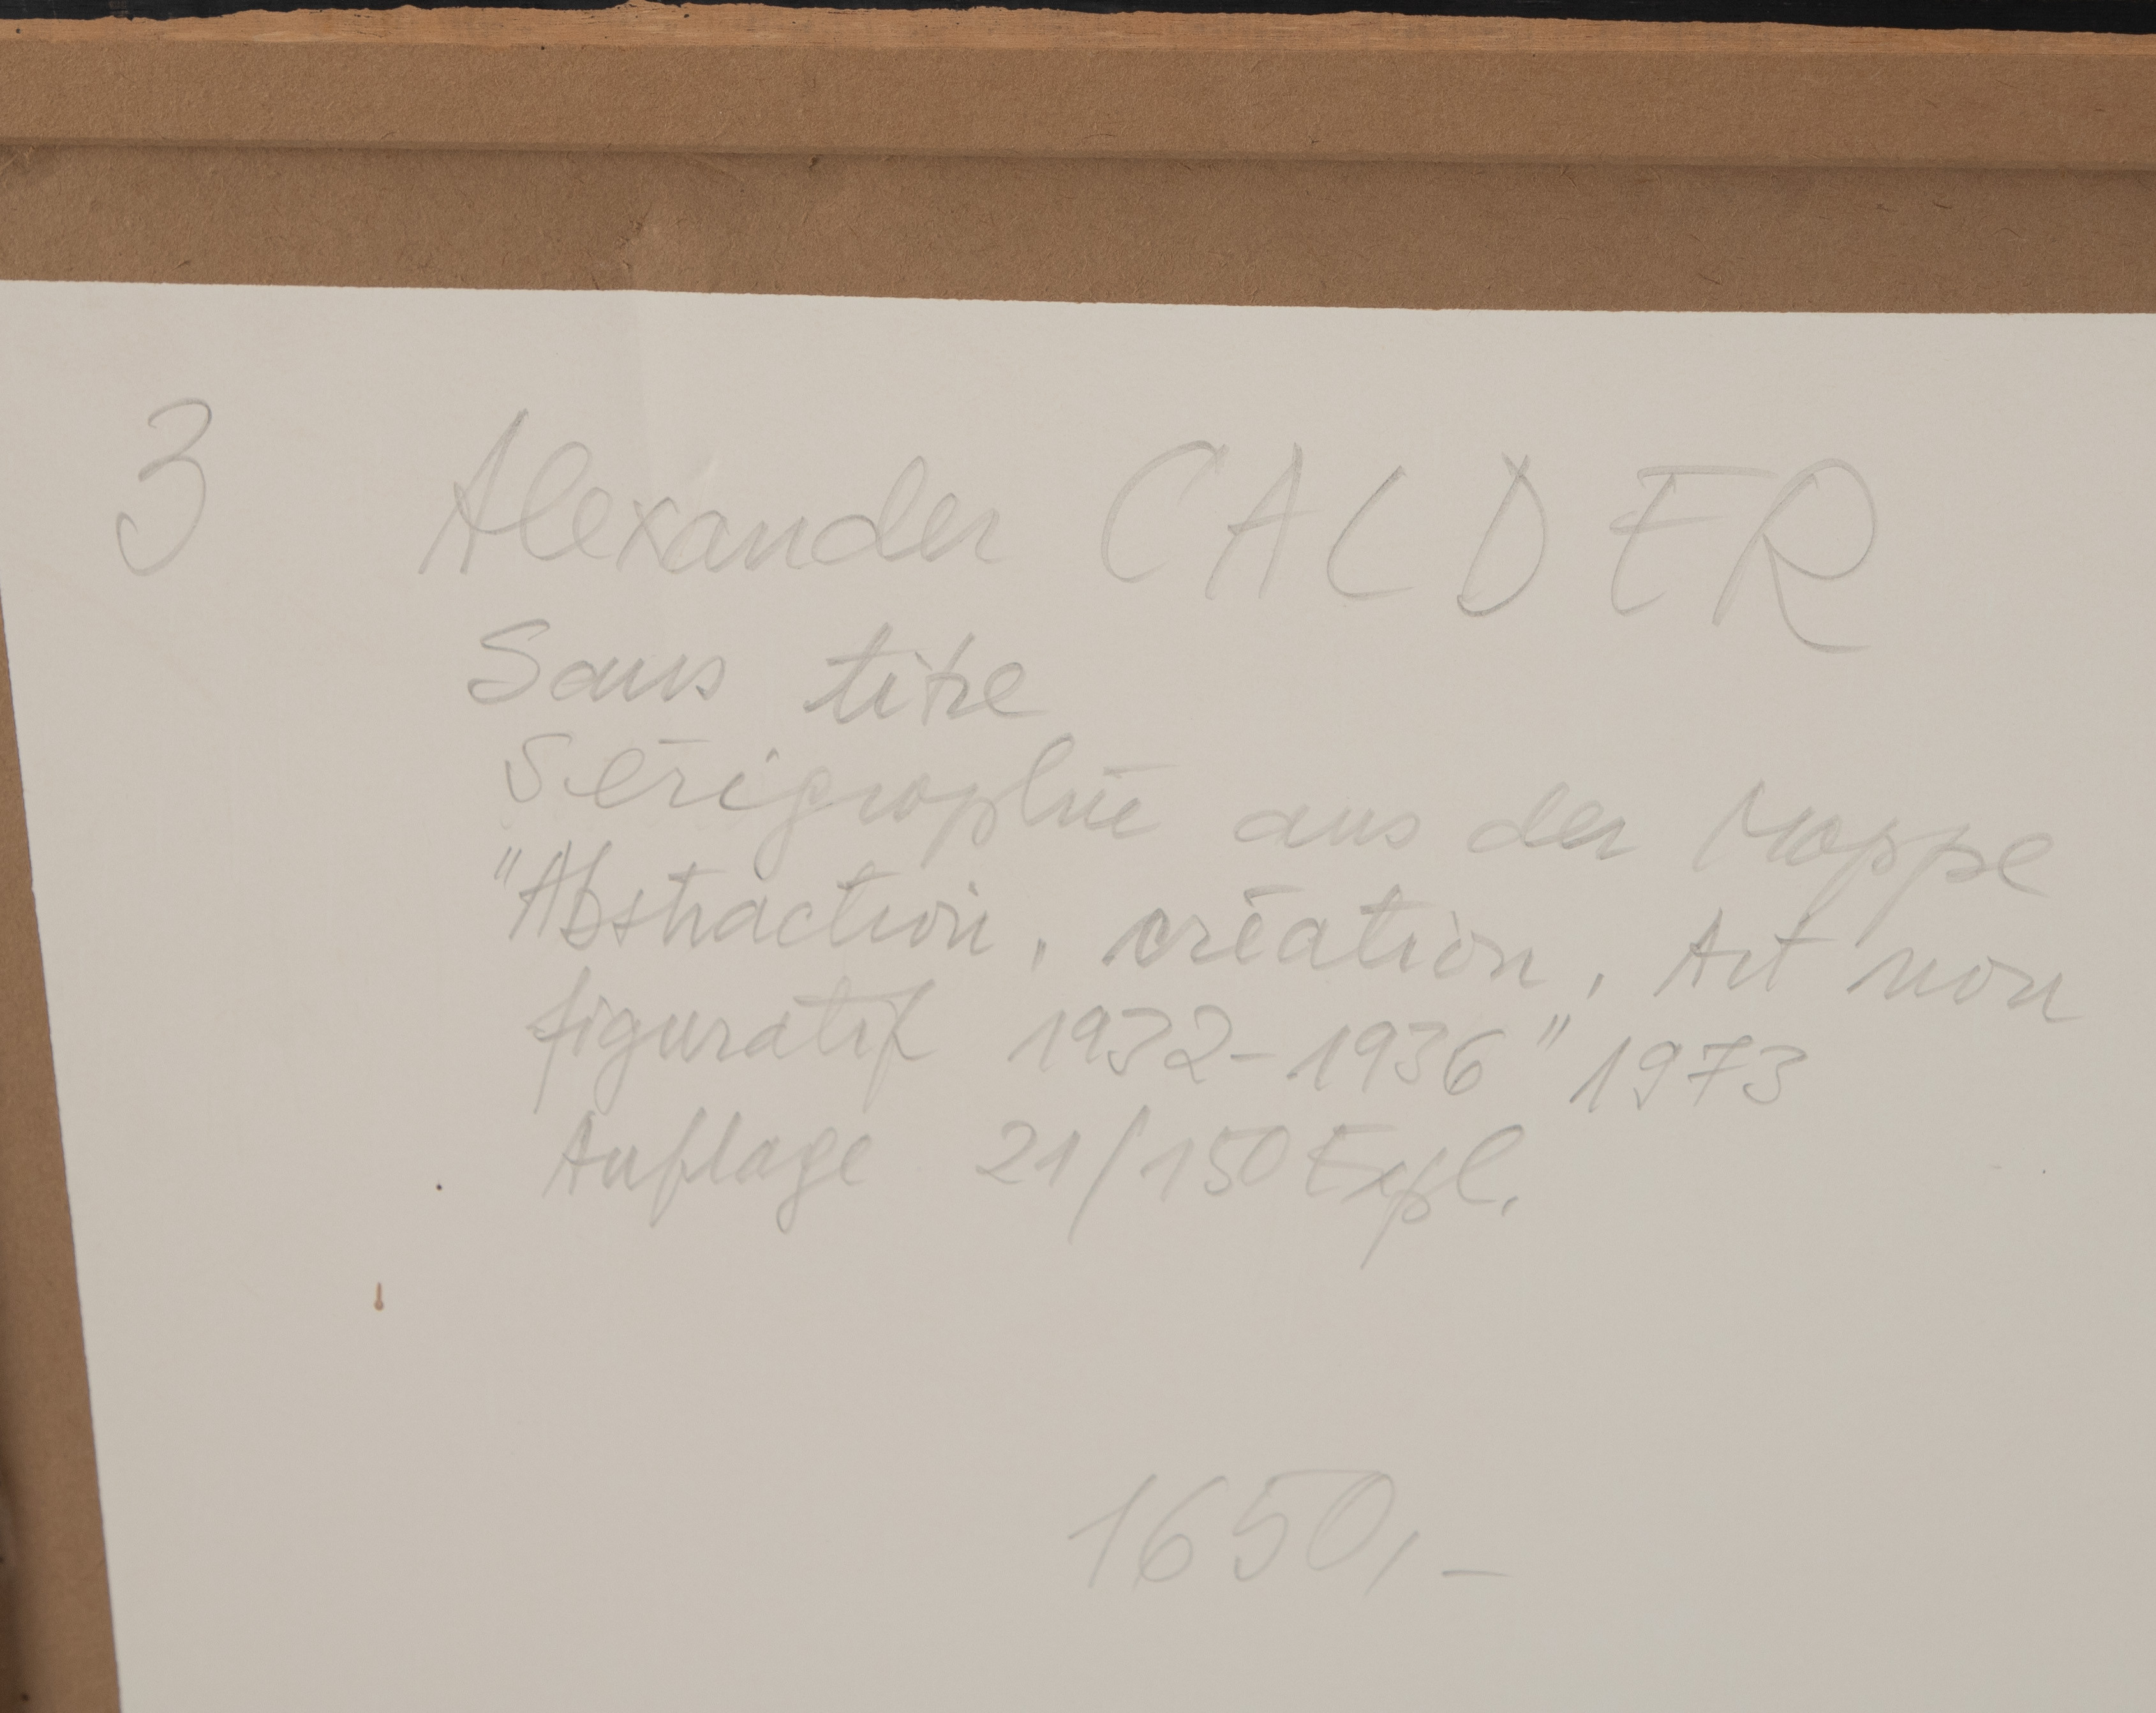 3 Alexander CALDER
Sans titre
Sérigraphie aus der Mappe
"Abstraction, création, Art non
figuratif 1932-1936" 1973
Auflage 21/150 Expl.
1650,-